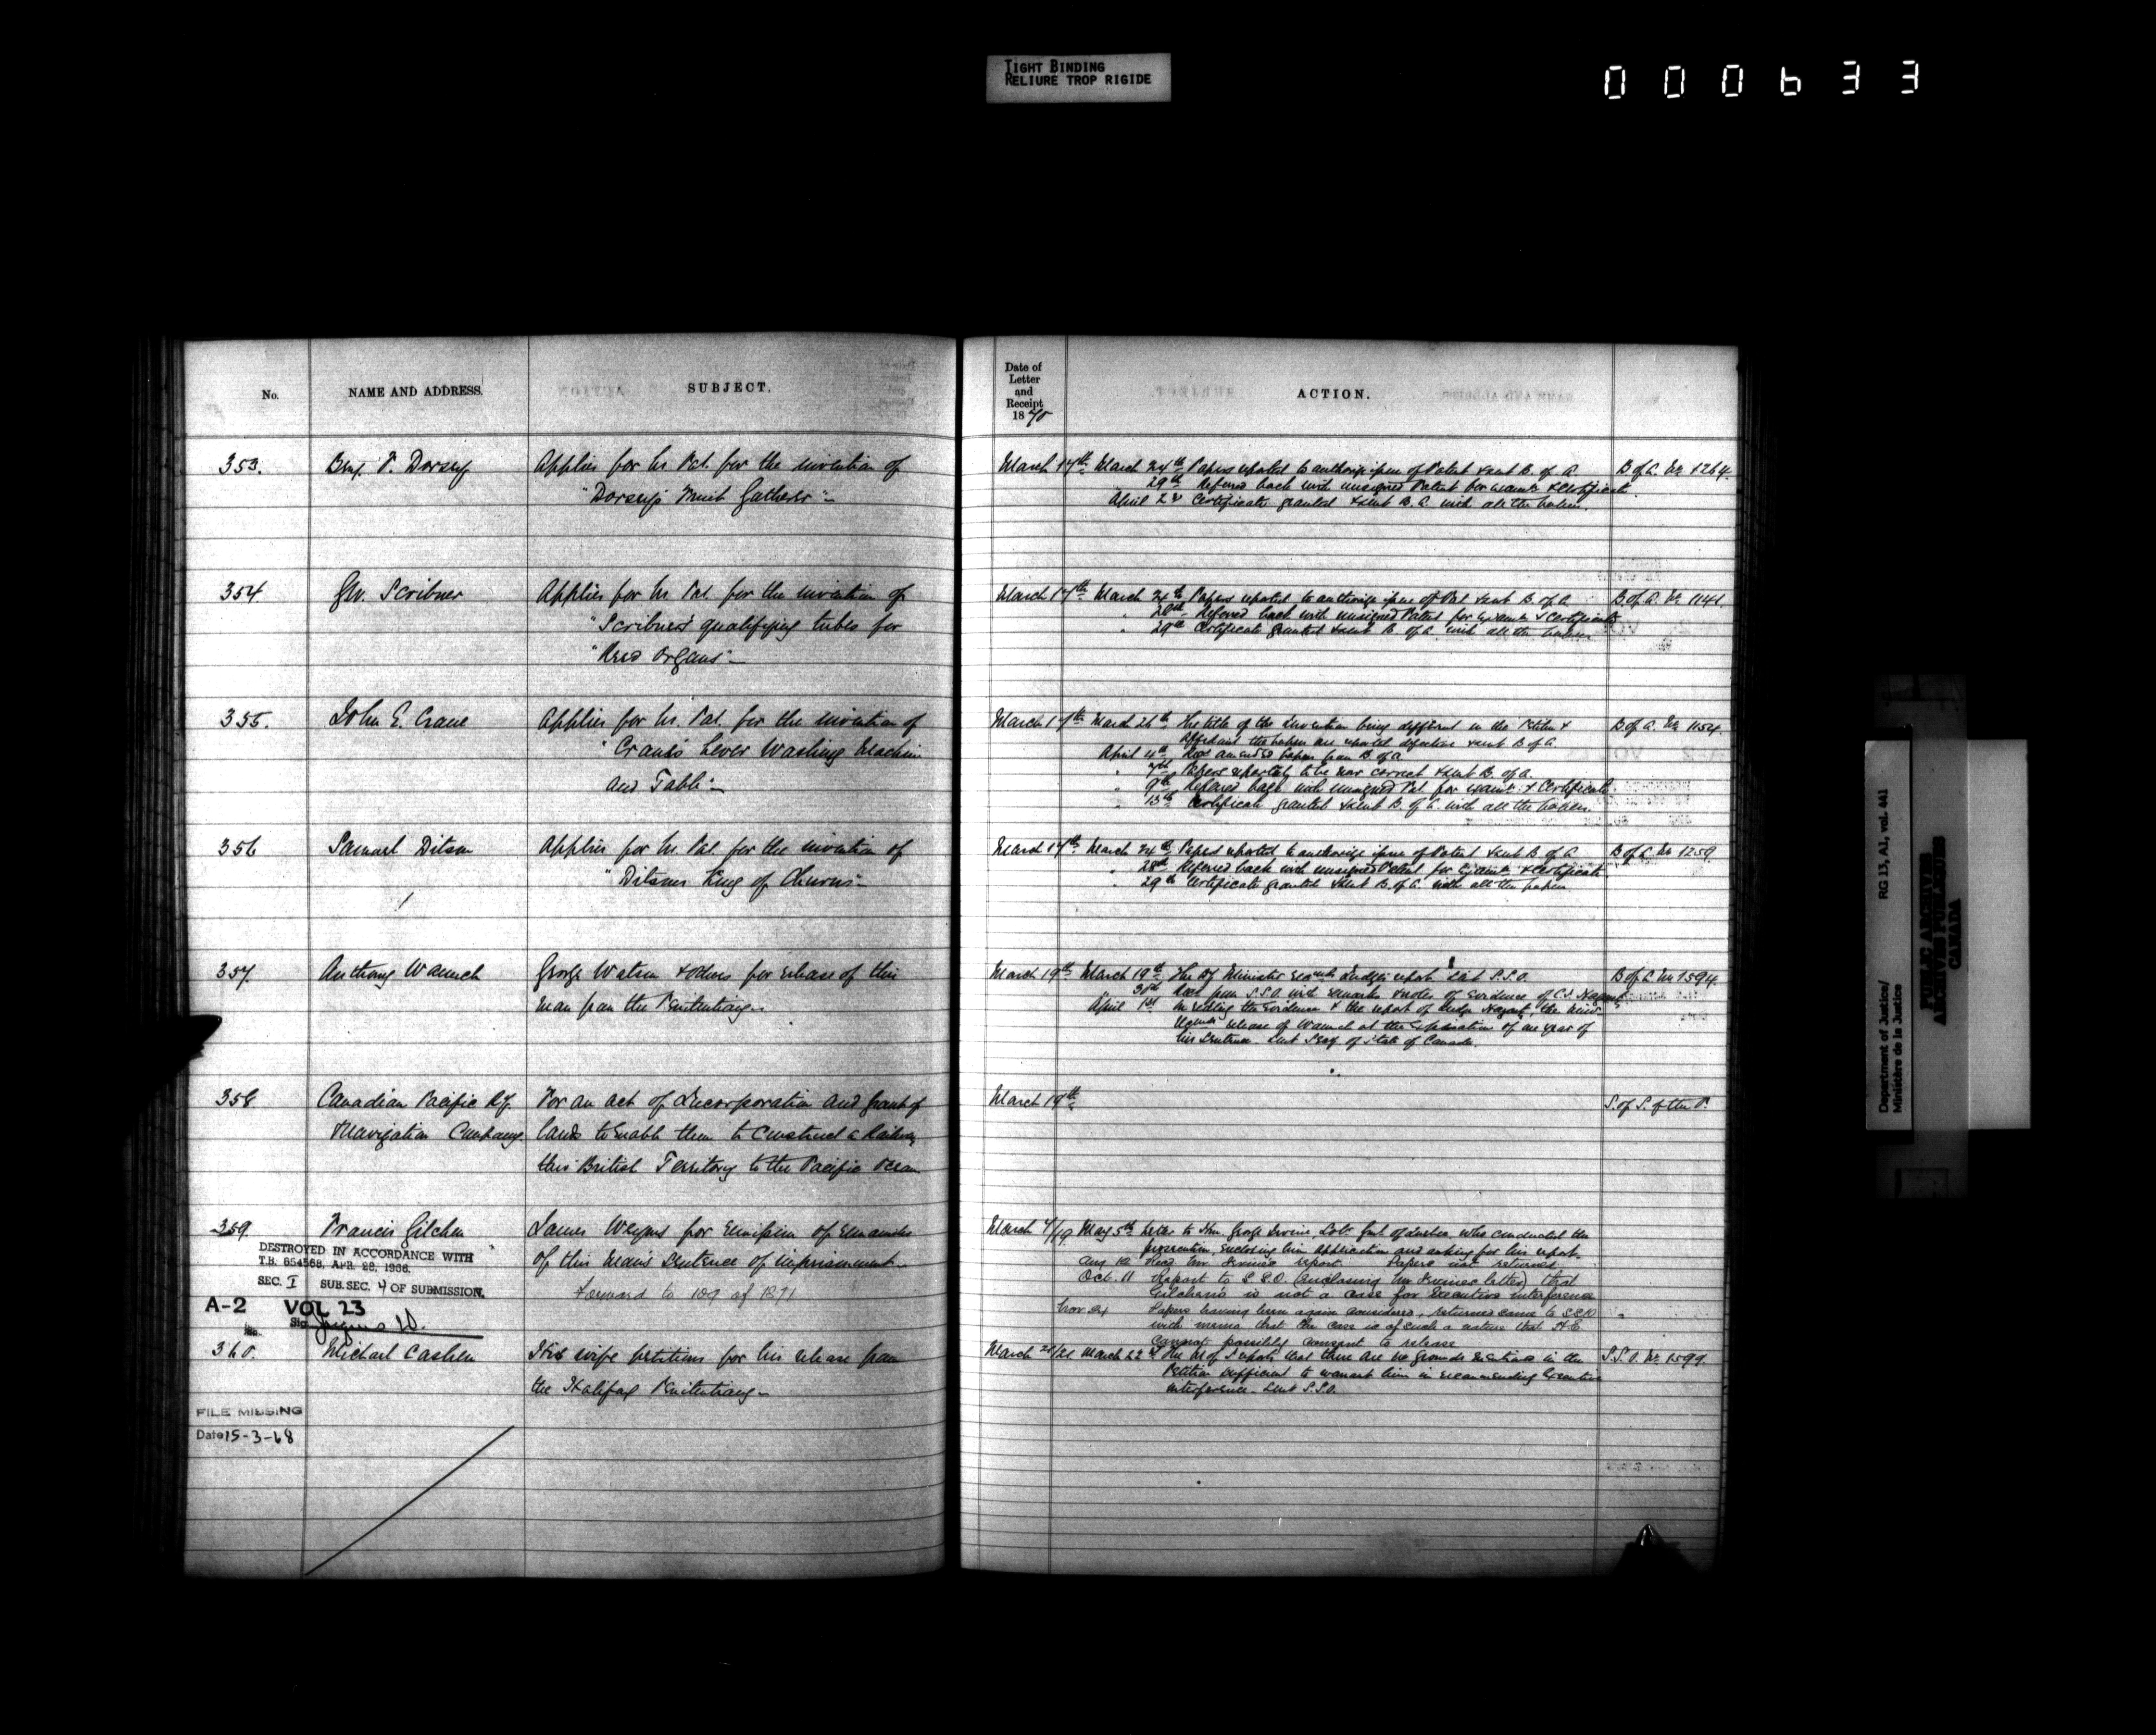 TIGHT BINDING
RELIURE TROP RIGIDE
000633
No.
NAME AND ADDRESS.
SUBJECT.
Date of
Letter
and
Receipt
1870
ACTION.
353.
Benj. F. Dorsey
Applies for Lr. Pat. for the invention of
"Dorsey's Fruit Gatherer"
March 17th March 24th Papers reported to authorize issue of Patent & sent B. of A. B of A. No 1264.
29th Referred back with unsigned Patent for exam. & Certificate.
April 2d Certificate granted & sent B. A. with all the papers.
354.
Scribner
Applies for Lr. Pat. for the invention of
"Scribner's qualifying tubes for
"Reed Organs"
March 17th March 24th Papers reported to authorize issue of Pat. & sent B. of A. B. of A. No 1141.
" 28th Referred back with unsigned Patent for exam. & Certificate
" 29th Certificate granted & sent B. of A. with all the papers
355.
John E. Crane
Applies for Lr. Pat. for the invention of
"Crane's Lever Washing Machine
and Table"
March 17th March 26th The title of the Invention being different in the Petition & B of A. No 1154.
Affidavit the papers are reported defective & sent B of A.
April 4th Recd amended papers from B. of A.
" 7th Papers reported to be now correct & sent B. of A.
" 9th Referred back with unsigned Pat. for exam. & Certificate.
" 13th Certificate granted & sent B. of A. with all the papers.
356
Samuel Ditson
Applies for Lr. Pat. for the invention of
"Ditson's King of Churns"
March 17th March 24th Papers reported to authorize issue of Patent & sent B of A. B of A. No 1259.
" 28th Referred back with unsigned Patent for Exam. & Certificate
" 29th Certificate granted & sent B. of A. with all the papers
357.
Anthony
George Watson & others for release of this
man from the Penitentiary.
March 19th March 19th The Minister Judge's report. Sent S.S.O. No 1594.
30th Recd from S.S.O. with remarks & notes of Evidence of C.J.
April 1st On reading the Evidence & the report of Judge the Minr
release of at the expiration of one year of
his Sentence. Sent Secy of State of Canada.
358.
Canadian Pacific Ry.
Navigation Company
For an act of Incorporation and grant of
lands to enable them to construct a Railway
thro' British Territory to the Pacific Ocean
March 19th
S. of S. of the P.
359.
Francis
James for remission of remainder
of this man's Sentence of imprisonment
forward to 109 of 1871
DESTROYED IN ACCORDANCE WITH
T.B. 654568, APR. 22, 1966.
SEC. I SUB.SEC. 4 OF SUBMISSION.
A-2 VOL 23
Sig.
March 7/19 May 5th Letter to Hon. George Irvine, Solr. Genl. of Quebec who conducted the
prosecution, enclosing him application and asking for his report.
Aug 12 Recd Mr. Irvine's report. Papers not returned.
Oct. 11 Report to S.S.O. (enclosing Mr Irvine's letter) that
is not a case for Executive interference
Nov 24 Papers having been again considered, returned same to S.S.O.
with memo that the case is of such a nature that H.E.
cannot possibly consent to release
360.
Michael Cashen
His wife petitions for his release from
the Halifax Penitentiary
March 21/21 March 22d The M of J reports that there are no grounds in the S.S.O. No 1599.
Petition sufficient to warrant him in recommending Executive
interference. Sent S.S.O.
FILE MISSING
Date 15-3-68
Department of Justice/ RG 13, A1, vol. 441
Ministère de la Justice
PUBLIC ARCHIVES
ARCHIVES PUBLIQUES
CANADA